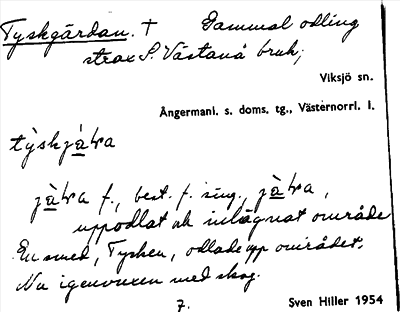 Tyskgärdan. † Gammal odling
strax S. Västanå bruk;
Viksjö sn.
Ångermanl. s. doms. tg., Västernorrl. l.
f., best. f. sing.
uppodlat och inhägnat område
En smed, Tysken, odlade upp området.
Nu igenvuxen med skog.
7.
Sven Hiller 1954